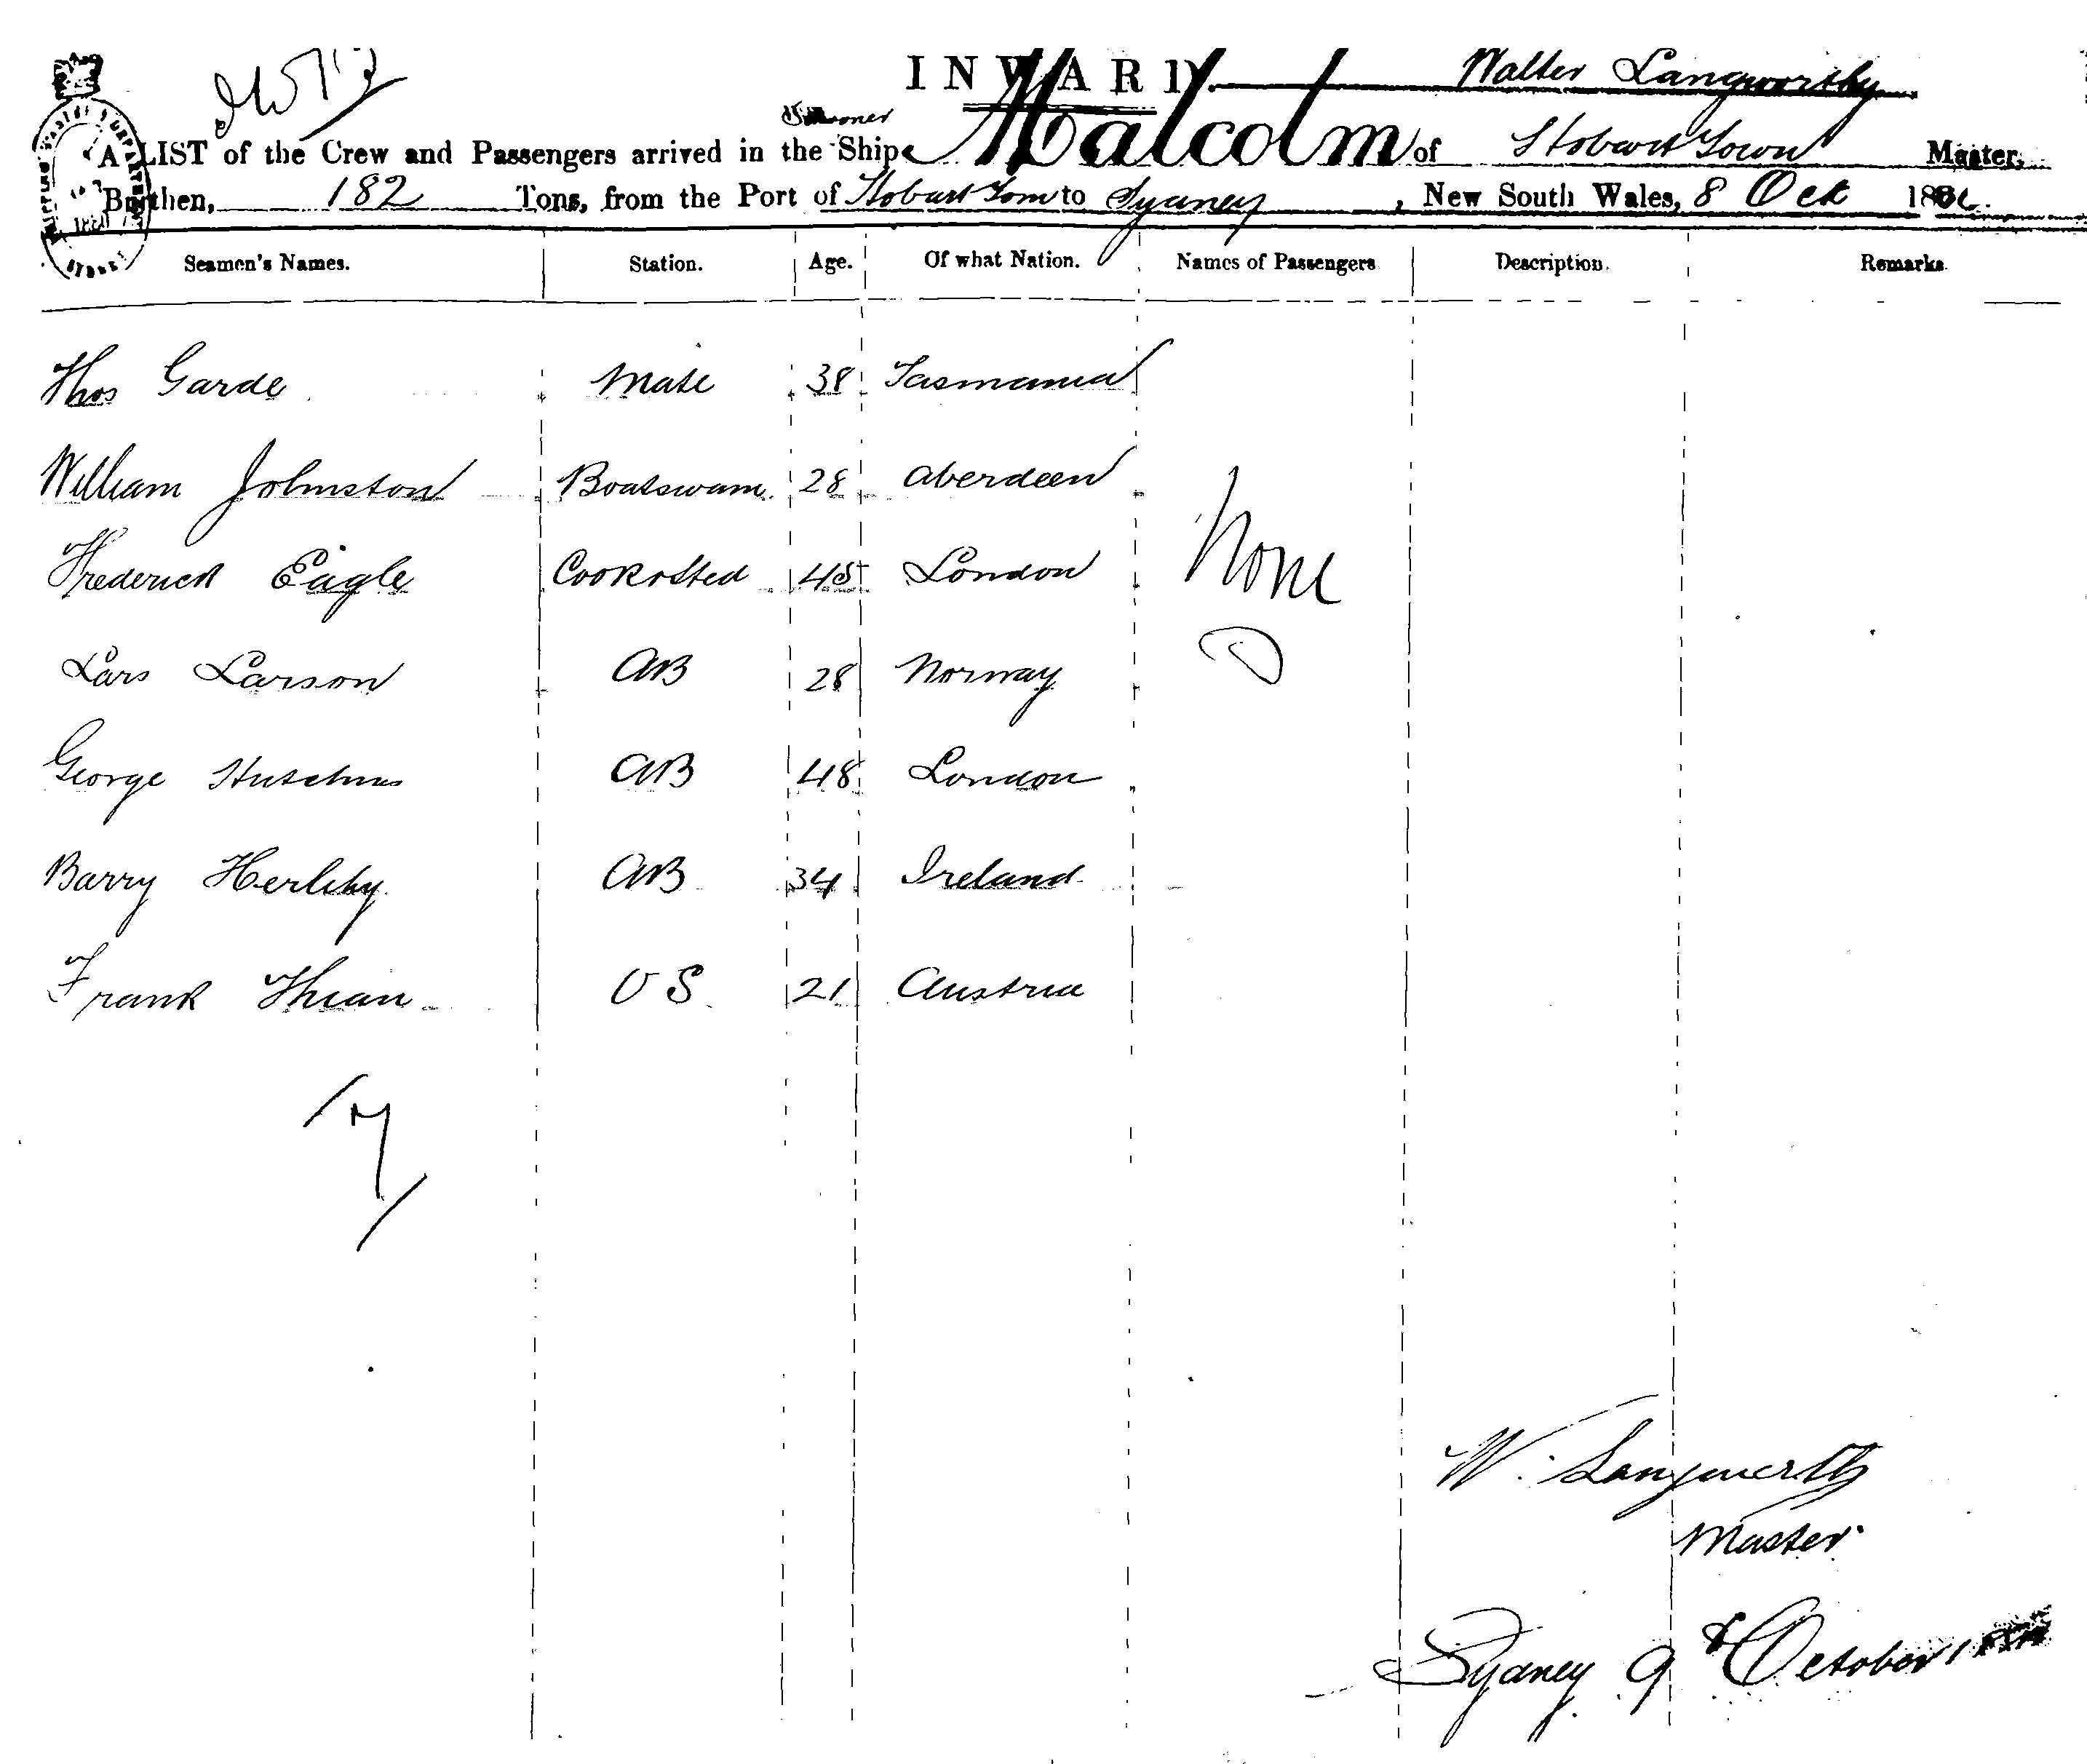 INWARD. Walter Langworthy
Schooner
A LIST of the Crew and Passengers arrived in the Ship Malcolm of Hobart Town Master,
Burthen, 182 Tons, from the Port of Hobart Town to Sydney, New South Wales, 8 Oct 188
Seamen's Names. Station. Age. Of what Nation. Names of Passengers Description. Remarks.
Thos Garde Mate 38 Tasmania
William Johnston Boatswain 28 Aberdeen
Frederick Eagle Cook & Sted 45 London None
Lars Larson AB 28 Norway
George Hutchins AB 48 London
Barry Herlihy AB 34 Ireland
Frank Thian OS 21 Austria
7
W. Langworthy
Master
Sydney 9th October 18